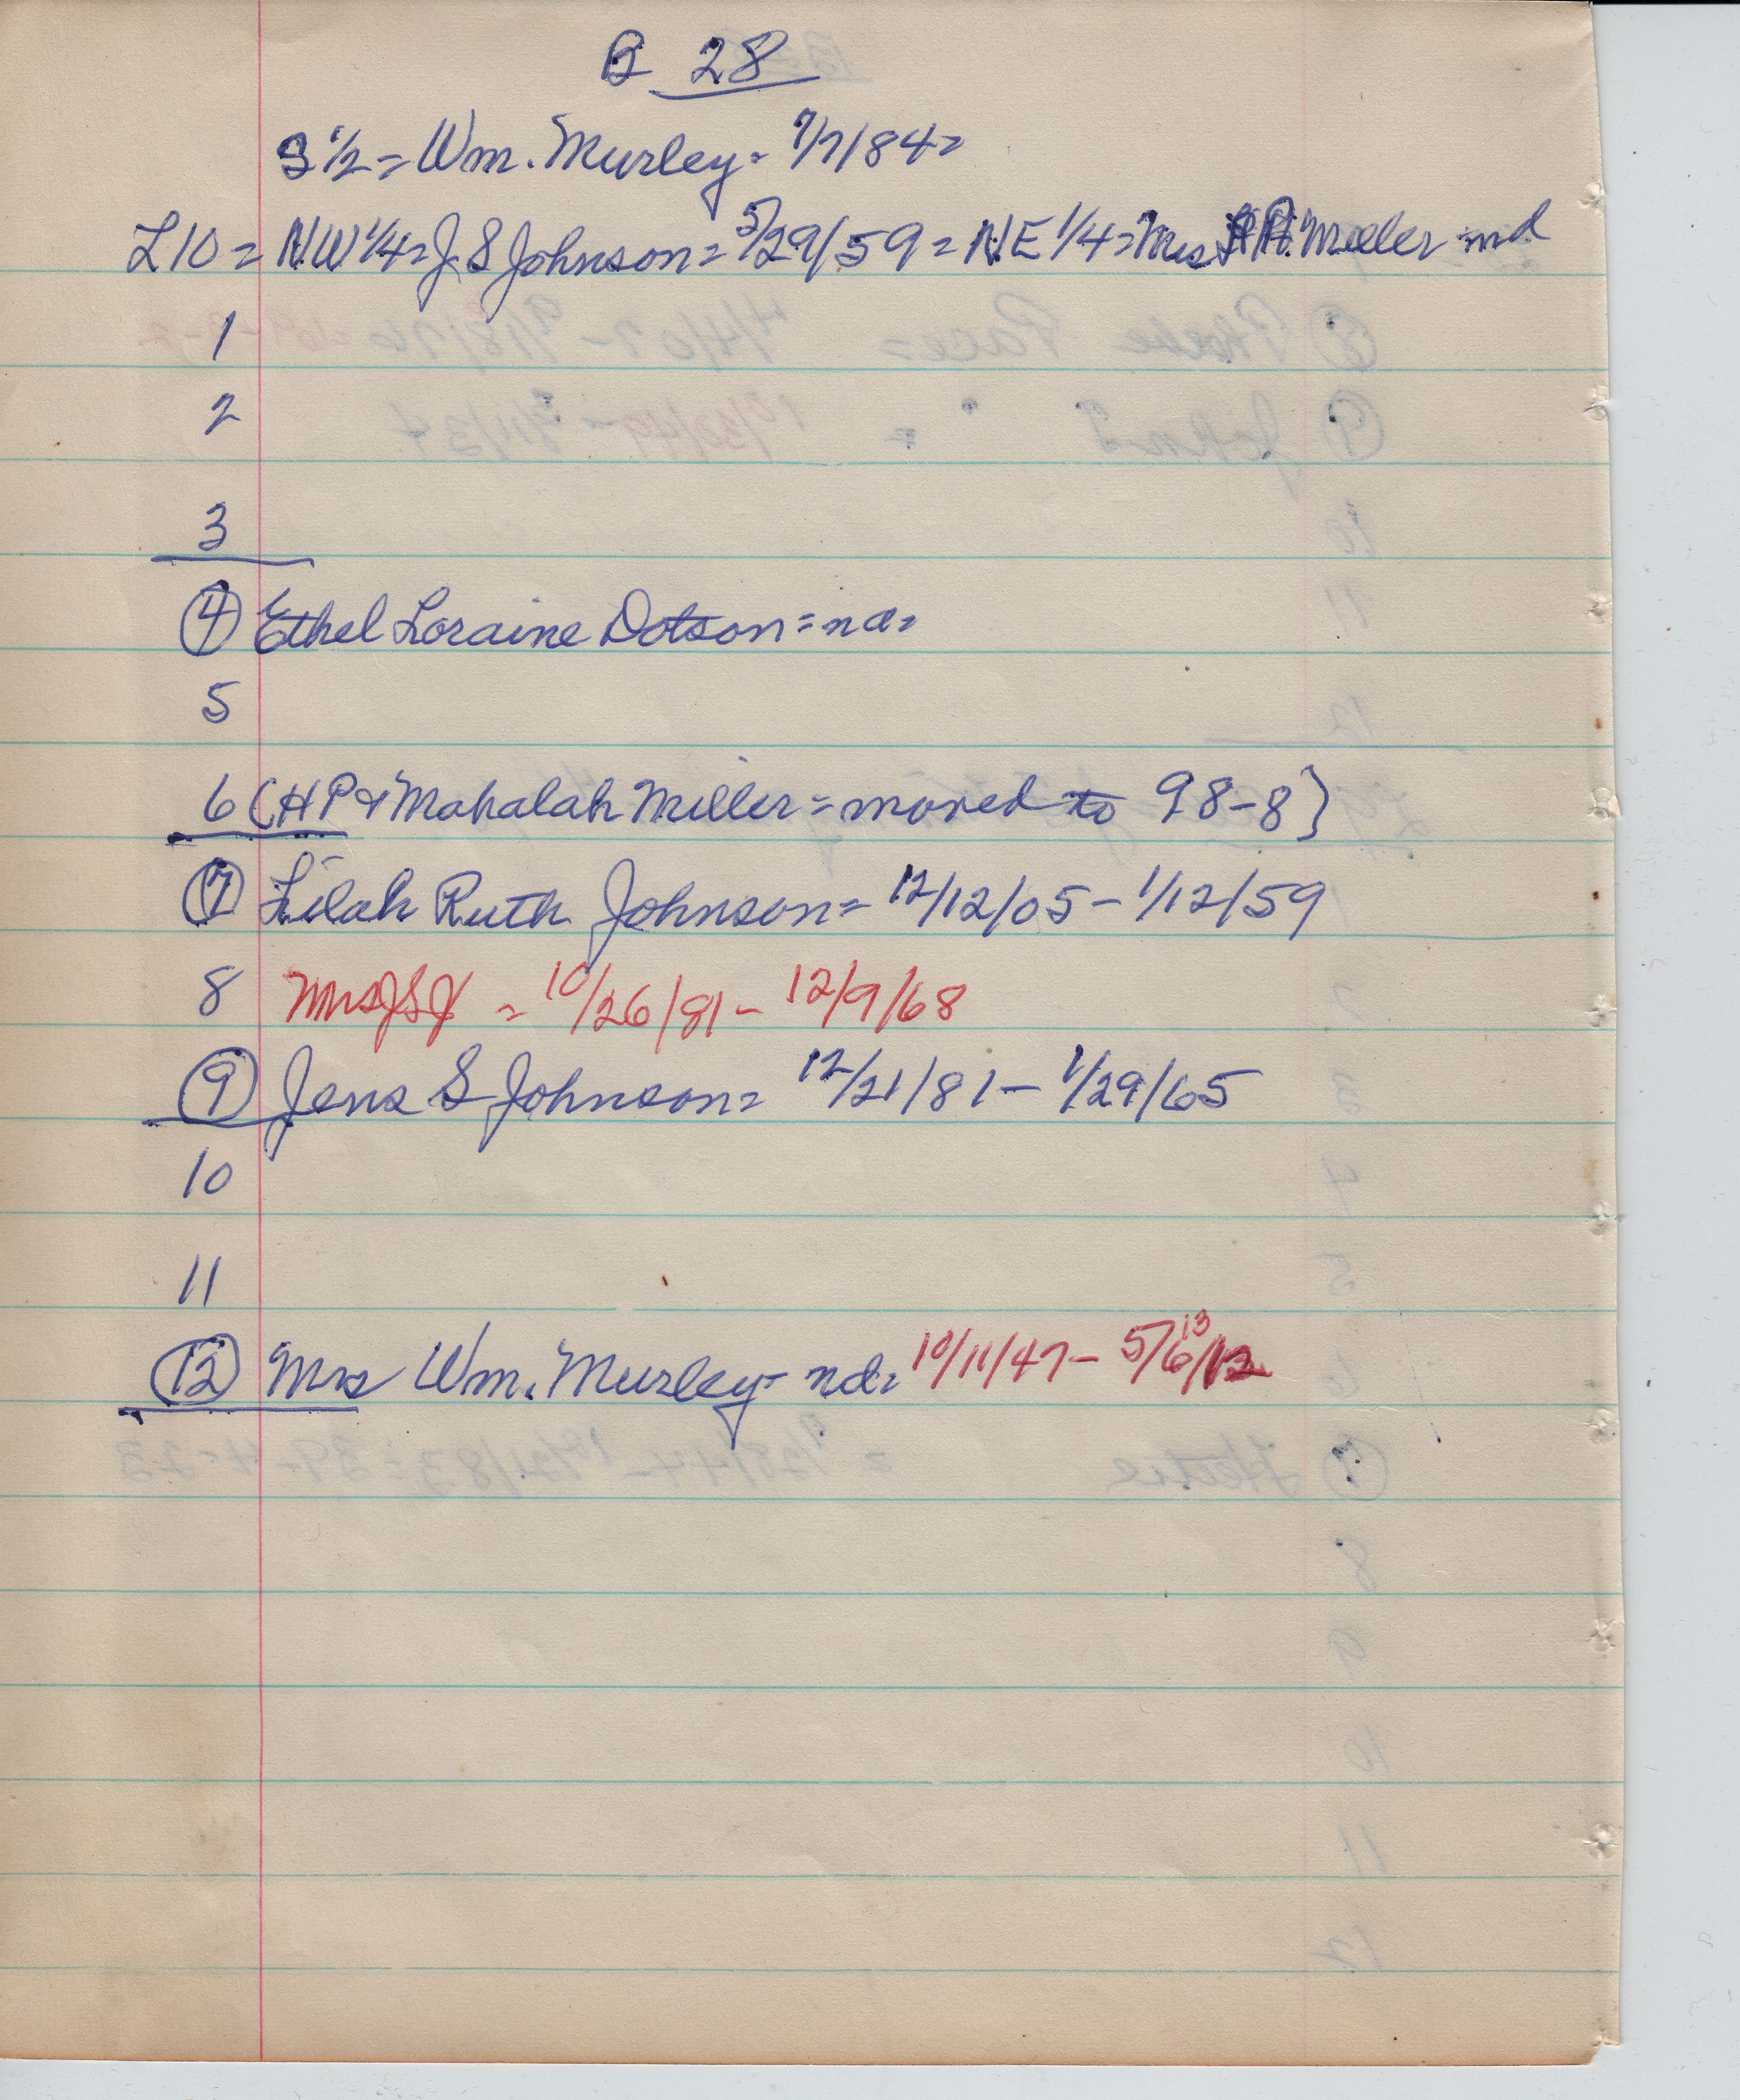 B 28
S 1/2 = Wm. Murley = 7/7/84 =
L10 = NW 1/4 = J S Johnson = 5/29/59 = NE 1/4 = Mrs Miller = nd
1
2
3
4 Ethel Loraine Dotson = nd =
5
6 (HP & Mahalah Miller = moved to 98-8)
7 Lilah Ruth Johnson = 12/12/05 - 1/12/59
8 Mrs JSJ = 10/26/81 - 12/9/68
9 Jens S Johnson = 12/21/81 - 1/29/65
10
11
12 Mrs Wm. Murley = nd = 10/11/47 - 5/6/13